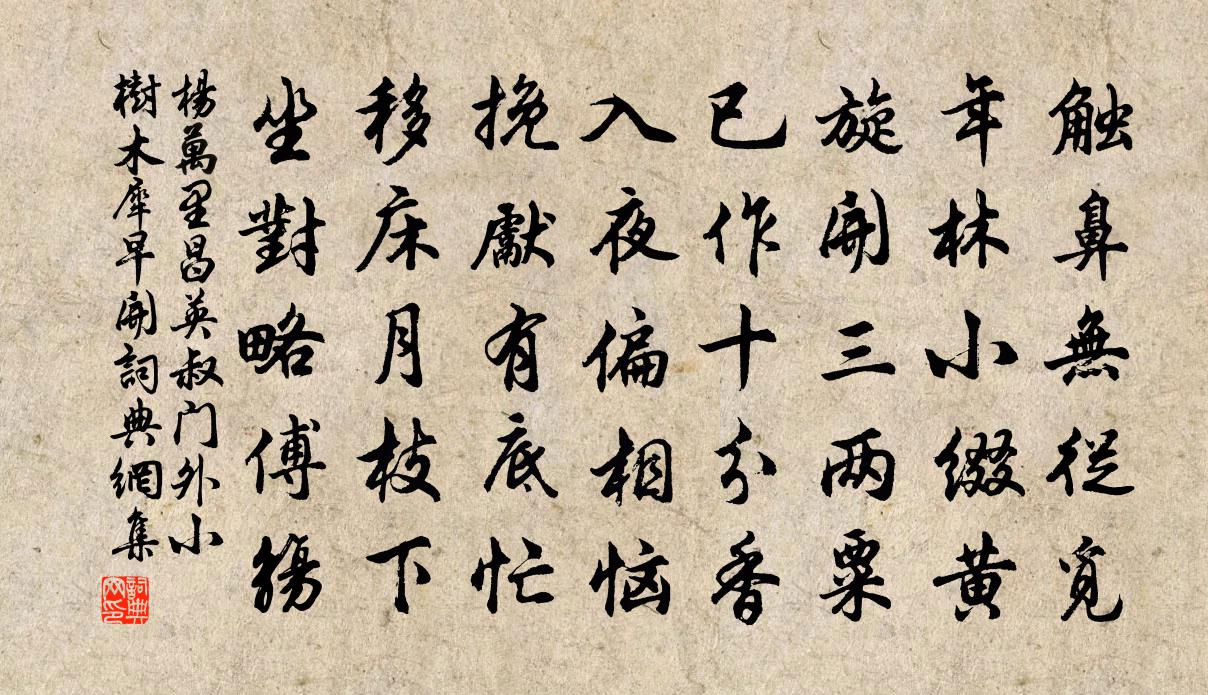 触鼻無從覓
年林小綴黄
旋開三两粟
已作十分香
入夜偏相恼
挽獻有底忙
移床月枝下
坐對略傅觴
楊萬里昌英叔门外小
樹木犀早開詞典網集
詞典
网印